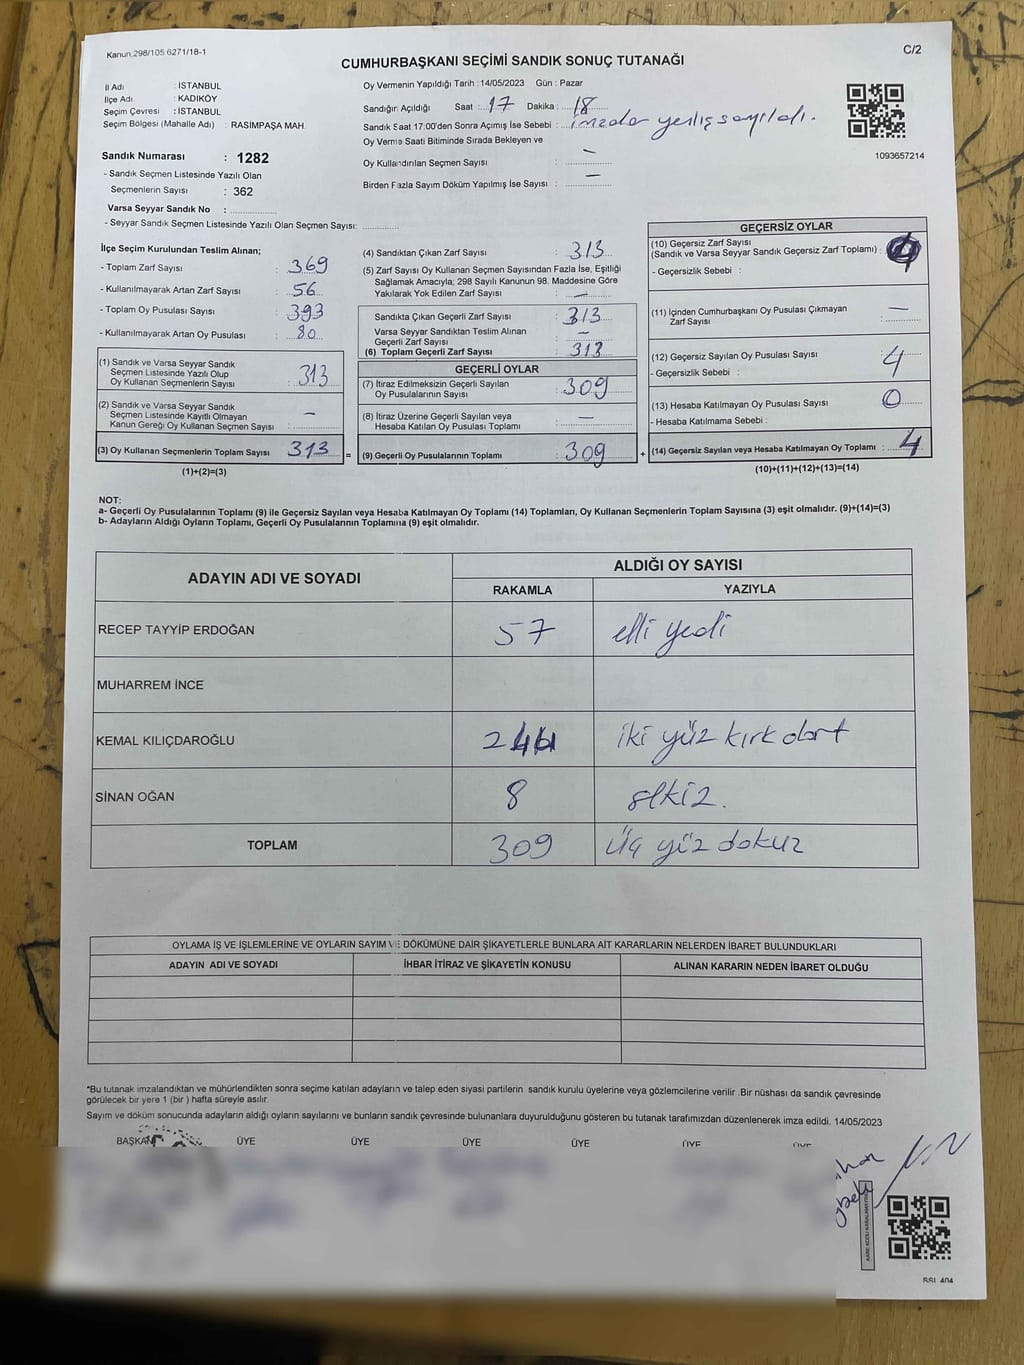 Kanun 298/105 6271/18-1
C/2
CUMHURBAŞKANI SEÇİMİ SANDIK SONUÇ TUTANAĞI
İl Adı : İSTANBUL
İlçe Adı : KADIKÖY
Seçim Çevresi : İSTANBUL
Seçim Bölgesi (Mahalle Adı) : RASİMPAŞA MAH.
Sandık Numarası : 1282
- Sandık Seçmen Listesinde Yazılı Olan
Seçmenlerin Sayısı : 362
Varsa Seyyar Sandık No :
- Seyyar Sandık Seçmen Listesinde Yazılı Olan Seçmen Sayısı:
Oy Vermenin Yapıldığı Tarih :14/05/2023 Gün : Pazar
Sandığın Açıldığı Saat : 17 Dakika : 18
Sandık Saat 17:00'den Sonra Açımış İse Sebebi : imzalar yanlış sayıldı.
Oy Verme Saati Bitiminde Sırada Bekleyen ve
Oy Kullandırılan Seçmen Sayısı : —
Birden Fazla Sayım Döküm Yapılmış İse Sayısı : —
1093657214
İlçe Seçim Kurulundan Teslim Alınan;
- Toplam Zarf Sayısı : 369
- Kullanılmayarak Artan Zarf Sayısı : 56
- Toplam Oy Pusulası Sayısı : 393
- Kullanılmayarak Artan Oy Pusulası : 80
(1) Sandık ve Varsa Seyyar Sandık
Seçmen Listesinde Yazılı Olup
Oy Kullanan Seçmenlerin Sayısı : 313
(2) Sandık ve Varsa Seyyar Sandık
Seçmen Listesinde Kayıtlı Olmayan
Kanun Gereği Oy Kullanan Seçmen Sayısı : —
(3) Oy Kullanan Seçmenlerin Toplam Sayısı : 313 =
(1)+(2)=(3)
(4) Sandıktan Çıkan Zarf Sayısı : 313
(5) Zarf Sayısı Oy Kullanan Seçmen Sayısından Fazla İse, Eşitliği
Sağlamak Amacıyla; 298 Sayılı Kanunun 98. Maddesine Göre
Yakılarak Yok Edilen Zarf Sayısı : —
Sandıkta Çıkan Geçerli Zarf Sayısı : 313
Varsa Seyyar Sandıktan Teslim Alınan
Geçerli Zarf Sayısı : —
(6) Toplam Geçerli Zarf Sayısı : 313
GEÇERLİ OYLAR
(7) İtiraz Edilmeksizin Geçerli Sayılan
Oy Pusulalarının Sayısı : 309
(8) İtiraz Üzerine Geçerli Sayılan veya
Hesaba Katılan Oy Pusulası Toplamı : —
(9) Geçerli Oy Pusulalarının Toplamı : 309 +
GEÇERSİZ OYLAR
(10) Geçersiz Zarf Sayısı
(Sandık ve Varsa Seyyar Sandık Geçersiz Zarf Toplamı) :
- Geçersizlik Sebebi :
(11) İçinden Cumhurbaşkanı Oy Pusulası Çıkmayan
Zarf Sayısı : —
(12) Geçersiz Sayılan Oy Pusulası Sayısı : 4
- Geçersizlik Sebebi :
(13) Hesaba Katılmayan Oy Pusulası Sayısı : 0
- Hesaba Katılmama Sebebi :
(14) Geçersiz Sayılan veya Hesaba Katılmayan Oy Toplamı : 4
(10)+(11)+(12)+(13)=(14)
NOT:
a- Geçerli Oy Pusulalarının Toplamı (9) ile Geçersiz Sayılan veya Hesaba Katılmayan Oy Toplamı (14) Toplamları, Oy Kullanan Seçmenlerin Toplam Sayısına (3) eşit olmalıdır. (9)+(14)=(3)
b- Adayların Aldığı Oyların Toplamı, Geçerli Oy Pusulalarının Toplamına (9) eşit olmalıdır.
ADAYIN ADI VE SOYADI
ALDIĞI OY SAYISI
RAKAMLA YAZIYLA
RECEP TAYYİP ERDOĞAN 57 elli yedi
MUHARREM İNCE
KEMAL KILIÇDAROĞLU 244 iki yüz kırk dört
SİNAN OĞAN 8 sekiz.
TOPLAM 309 Üç yüz dokuz
OYLAMA İŞ VE İŞLEMLERİNE VE OYLARIN SAYIM VE DÖKÜMÜNE DAİR ŞİKAYETLERLE BUNLARA AİT KARARLARIN NELERDEN İBARET BULUNDUKLARI
ADAYIN ADI VE SOYADI İHBAR İTİRAZ VE ŞİKAYETİN KONUSU ALINAN KARARIN NEDEN İBARET OLDUĞU
*Bu tutanak imzalandıktan ve mühürlendikten sonra seçime katılan adayların ve talep eden siyasi partilerin sandık kurulu üyelerine veya gözlemcilerine verilir .Bir nüshası da sandık çevresinde
görülecek bir yere 1 (bir ) hafta süreyle asılır.
Sayım ve döküm sonucunda adayların aldığı oyların sayılarını ve bunların sandık çevresinde bulunanlara duyurulduğunu gösteren bu tutanak tarafımızdan düzenlenerek imza edildi. 14/05/2023
BAŞKAN ÜYE ÜYE ÜYE ÜYE ÜYE ÜYE